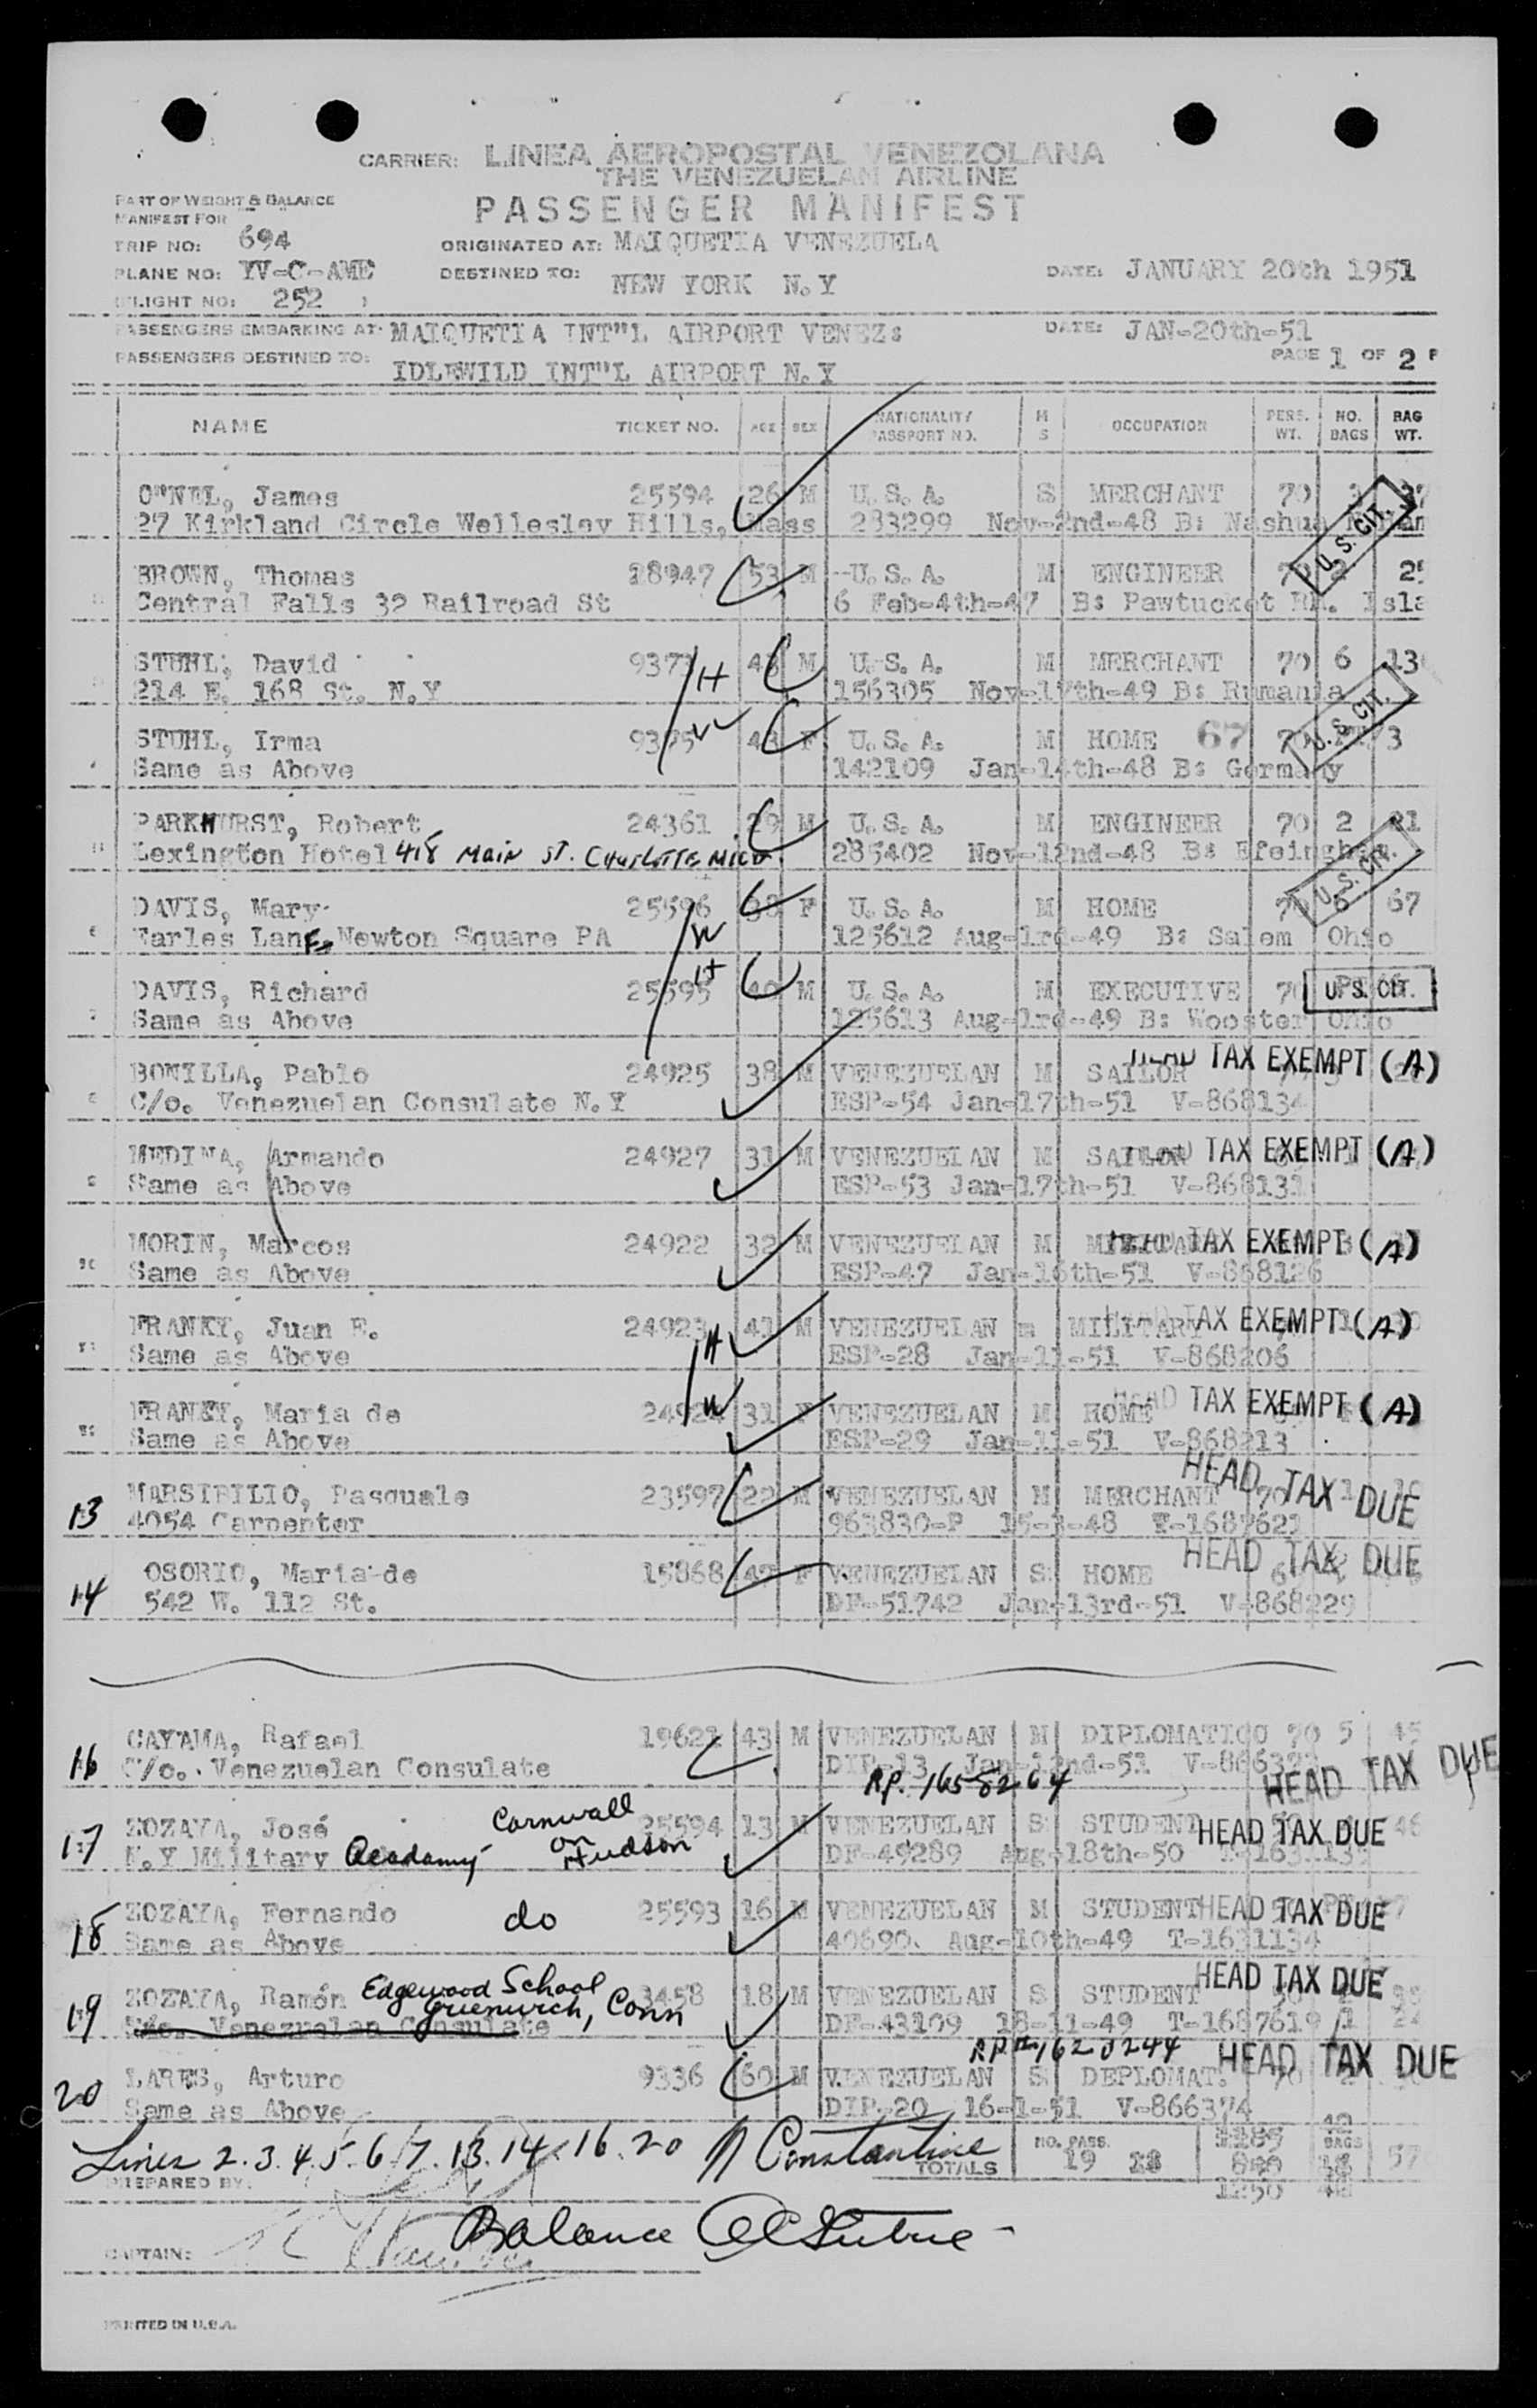 CARRIER: LINEA AEROPOSTAL VENEZOLANA
THE VENEZUELAN AIRLINE
PART OF WEIGHT & BALANCE
MANIFEST FOR
PASSENGER MANIFEST
TRIP NO: 694
ORIGINATED AT: MAIQUETIA VENEZUELA
PLANE NO: YV-C-AME
DESTINED TO: NEW YORK N.Y
DATE: JANUARY 20th 1951
FLIGHT NO: 252
PASSENGERS EMBARKING AT: MAIQUETIA INT"L AIRPORT VENEZ:
DATE: JAN-20th-51
PASSENGERS DESTINED TO: IDLEWILD INT"L AIRPORT N.Y
PAGE 1 OF 2
NAME TICKET NO. AGE SEX NATIONALITY PASSPORT NO. M S OCCUPATION PERS. WT. NO. BAGS BAG WT.
O"NEL, James 25594 26 M U.S.A. S MERCHANT 70
27 Kirkland Circle Wellesley Hills, Mass 283299 Nov-2nd-48 B: Nashua
U.S. CIT.
BROWN, Thomas 28947 53 M U.S.A. M ENGINEER 70 2
Central Falls 32 Railroad St 6 Feb-4th-47 B: Pawtucket Rh. Isla
STUHL, David 937 43 M U.S.A. M MERCHANT 70 6 13
H
214 E. 168 St. N.Y 156305 Nov-17th-49 B: Rumania
U.S. CIT.
STUHL, Irma 9375 43 F U.S.A. M HOME 67 70 3
W
Same as Above 142109 Jan-14th-48 B: Germany
PARKHURST, Robert 24361 29 M U.S.A. M ENGINEER 70 2 21
Lexington Hotel 418 MAIN ST. CHARLOTTE MICH. 285402 Nov-12nd-48 B: Efeingham.
U.S. CIT.
DAVIS, Mary 25596 38 F U.S.A. M HOME 70 6 67
W
Earles LanE. Newton Square PA 125612 Aug-1rd-49 B: Salem Ohio
DAVIS, Richard 25595 40 M U.S.A. M EXECUTIVE 70
H
U.S. CIT.
Same as Above 125613 Aug-1rd-49 B: Wooster Ohio
BONILLA, Pablo 24925 38 M VENEZUELAN M SAILOR
HEAD TAX EXEMPT (A)
C/o. Venezuelan Consulate N.Y ESP-54 Jan-17th-51 V-868134
MEDINA, Armando 24927 31 M VENEZUELAN M SAILOR
TAX EXEMPT (A)
Same as Above ESP-53 Jan-17th-51 V-868131
MORIN, Marcos 24922 32 M VENEZUELAN M MILITARY
TAX EXEMPT (A)
Same as Above ESP-47 Jan-16th-51 V-868126
FRANKY, Juan E. 24923 41 M VENEZUELAN m MILITARY
H
HEAD TAX EXEMPT (A)
Same as Above ESP-28 Jan-11-51 V-868206
FRANKY, Maria de 24924 31 F VENEZUELAN M HOME
W
HEAD TAX EXEMPT (A)
Same as Above ESP-29 Jan-11-51 V-868213
MARSIBILIO, Pasquale 23597 22 M VENEZUELAN M MERCHANT 70
HEAD TAX DUE
13 4054 Carpenter 963830-P 15-1-48 T-1687621
OSORIO, Maria de 15868 42 F VENEZUELAN S HOME
HEAD TAX DUE
14 542 W. 112 St. DF-51742 Jan-13rd-51 V-868229
CAYAMA, Rafael 19621 43 M VENEZUELAN M DIPLOMATICO 70 5 45
16 C/o. Venezuelan Consulate DIP-13 Jan-12nd-51 V-86632
HEAD TAX DUE
RP. 1658264
ZOZAYA, José 25594 13 M VENEZUELAN S STUDENT 46
Cornwall on Hudson
HEAD TAX DUE
17 N.Y Military Academy DF-49289 Aug-18th-50 T-1631135
ZOZAYA, Fernando do 25593 16 M VENEZUELAN M STUDENT
HEAD TAX DUE
18 Same as Above 40690. Aug-10th-49 T-1631134
ZOZAYA, Ramón 3458 18 M VENEZUELAN S STUDENT
Edgewood School
Greenwich, Conn
HEAD TAX DUE
19 C/o. Venezuelan Consulate DF-43109 18-11-49 T-1687619
LARES, Arturo 9336 60 M VENEZUELAN S DEPLOMAT. 70
HEAD TAX DUE
20 Same as Above DIP-20 16-1-51 V-866374
Lines 2.3.4.5.6.7.13.14.16.20 N Constantine
TOTALS NO. PASS. 19 18 BAGS 57
1250
PREPARED BY:
Balance
CAPTAIN:
PRINTED IN U.S.A.